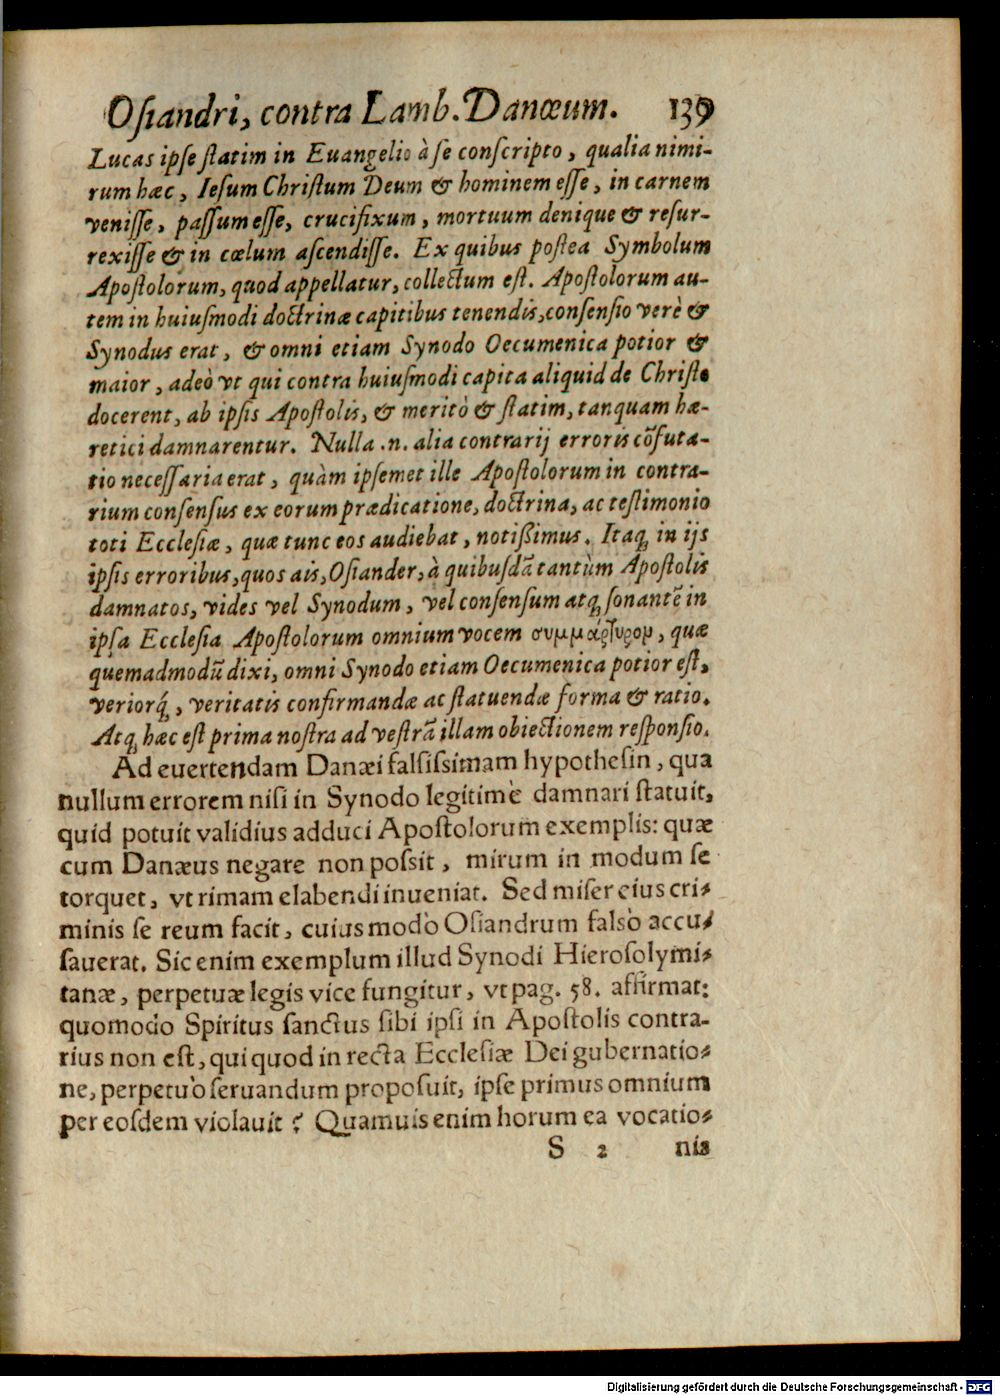 Oſiandri, contra Lamb. Danæum. 139
Lucas ipſe ſtatim in Euangelio à ſe conſcripto, qualia nimi-
rum hæc, Ieſum Chriſtum Deum & hominem eſſe, in carnem
veniſſe, paſſum eſſe, crucifixum, mortuum denique & reſur-
rexiſſe & in cœlum aſcendiſſe. Ex quibus poſtea Symbolum
Apoſtolorum, quod appellatur, collectum eſt. Apoſtolorum au-
tem in huiuſmodi doctrinæ capitibus tenendis, conſenſio verè &
Synodus erat, & omni etiam Synodo Oecumenica potior &
maior, adeò vt qui contra huiuſmodi capita aliquid de Chriſto
docerent, ab ipſis Apoſtolis, & meritò & ſtatim, tanquam hæ-
retici damnarentur. Nulla .n. alia contrarij erroris cõfuta-
tio neceſſaria erat, quàm ipſemet ille Apoſtolorum in contra-
rium conſenſus ex eorum prædicatione, doctrina, ac teſtimonio
toti Eccleſiæ, quæ tunc eos audiebat, notißimus. Itaq́ in ijs
ipſis erroribus, quos ais, Oſiander, à quibuſdã tantùm Apoſtolis
damnatos, vides vel Synodum, vel conſenſum atq́ ſonantẽ in
ipſa Eccleſia Apoſtolorum omnium vocem συμμάρτυρομ, quæ
quemadmodũ dixi, omni Synodo etiam Oecumenica potior eſt,
veriorq́, veritatis confirmandæ ac ſtatuendæ forma & ratio.
Atq́ hæc eſt prima noſtra ad veſtrã illam obiectionem reſponſio.
Ad euertendam Danæi falſiſsimam hypotheſin, qua
nullum errorem niſi in Synodo legitimè damnari ſtatuit,
quid potuit validius adduci Apoſtolorum exemplis: quæ
cum Danæus negare non poſsit, mirum in modum ſe
torquet, vt rimam elabendi inueniat. Sed miſer eius cri-
minis ſe reum facit, cuius modò Oſiandrum falsò accu-
ſauerat. Sic enim exemplum illud Synodi Hieroſolymi-
tanæ, perpetuæ legis vice fungitur, vt pag. 58. affirmat:
quomodo Spiritus ſanctus ſibi ipſi in Apoſtolis contra-
rius non eſt, qui quod in recta Eccleſiæ Dei gubernatio-
ne, perpetuò ſeruandum propoſuit, ipſe primus omnium
per eoſdem violauit? Quamuis enim horum ea vocatio-
S 2 nis
Digitalisierung gefördert durch die Deutsche Forschungsgemeinschaft - DFG